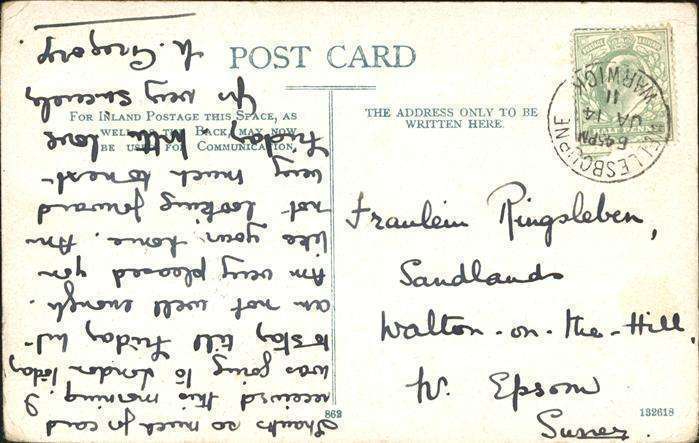 POST CARD
FOR INLAND POSTAGE THIS SPACE, AS
WELL AS THE BACK, MAY NOW
BE USED FOR COMMUNICATION.
THE ADDRESS ONLY TO BE
WRITTEN HERE.
WELLESBOURNE
6 45 PM
JA 14
11
WARWICK
HALFPENNY
Fraulein Ringsleben,
Sandlands
Walton-on-the-Hill,
Nr. Epsom
Surrey
862
132618
Thanks so much for card
received this morning. I
was going to London today
to stay till Friday but
am not well enough.
Am very pleased you
like your home. Am
not looking forward
very much to next
Friday. With love
Yrs very sincerely
N. Gregory.